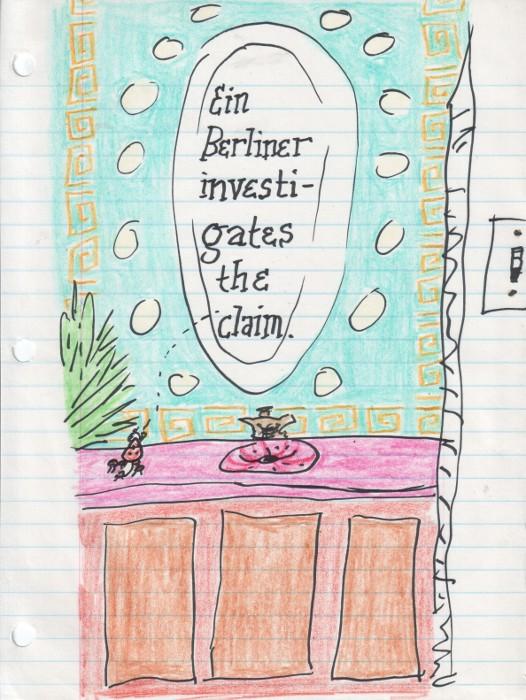 Ein
Berliner
investi-
gates
the
claim.